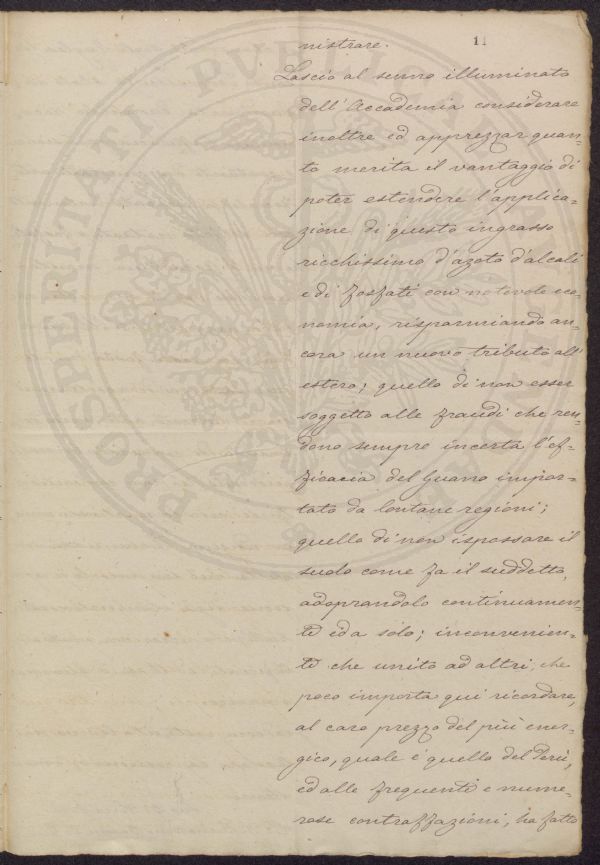 11
nistrare.
Lascio al senno illuminato
dell'Accademia considerare
inoltre ed apprezzar quan-
to merita il vantaggio di
poter estendere l'applica-
zione di questo ingrasso
ricchissimo d'azoto d'alcali
e di fosfati con notevole eco-
nomia, risparmiando an-
cora un nuovo tributo all'
estero; quello di non esser
soggetto alle fraudi che ren-
dono sempre incerta l'ef-
ficacia del Guano impor-
tato da lontane regioni;
quello di non ispossare il
suolo come fa il suddetto,
adoprandolo continuamen-
te ed a solo; inconvenien-
te che unito ad altri, che
poco importa qui ricordare,
al caro prezzo del più ener-
gico, quale è quello del Perù,
ed alle frequenti e nume-
rose contraffazioni, ha fatto
PROSPERITATI PUBLICAE